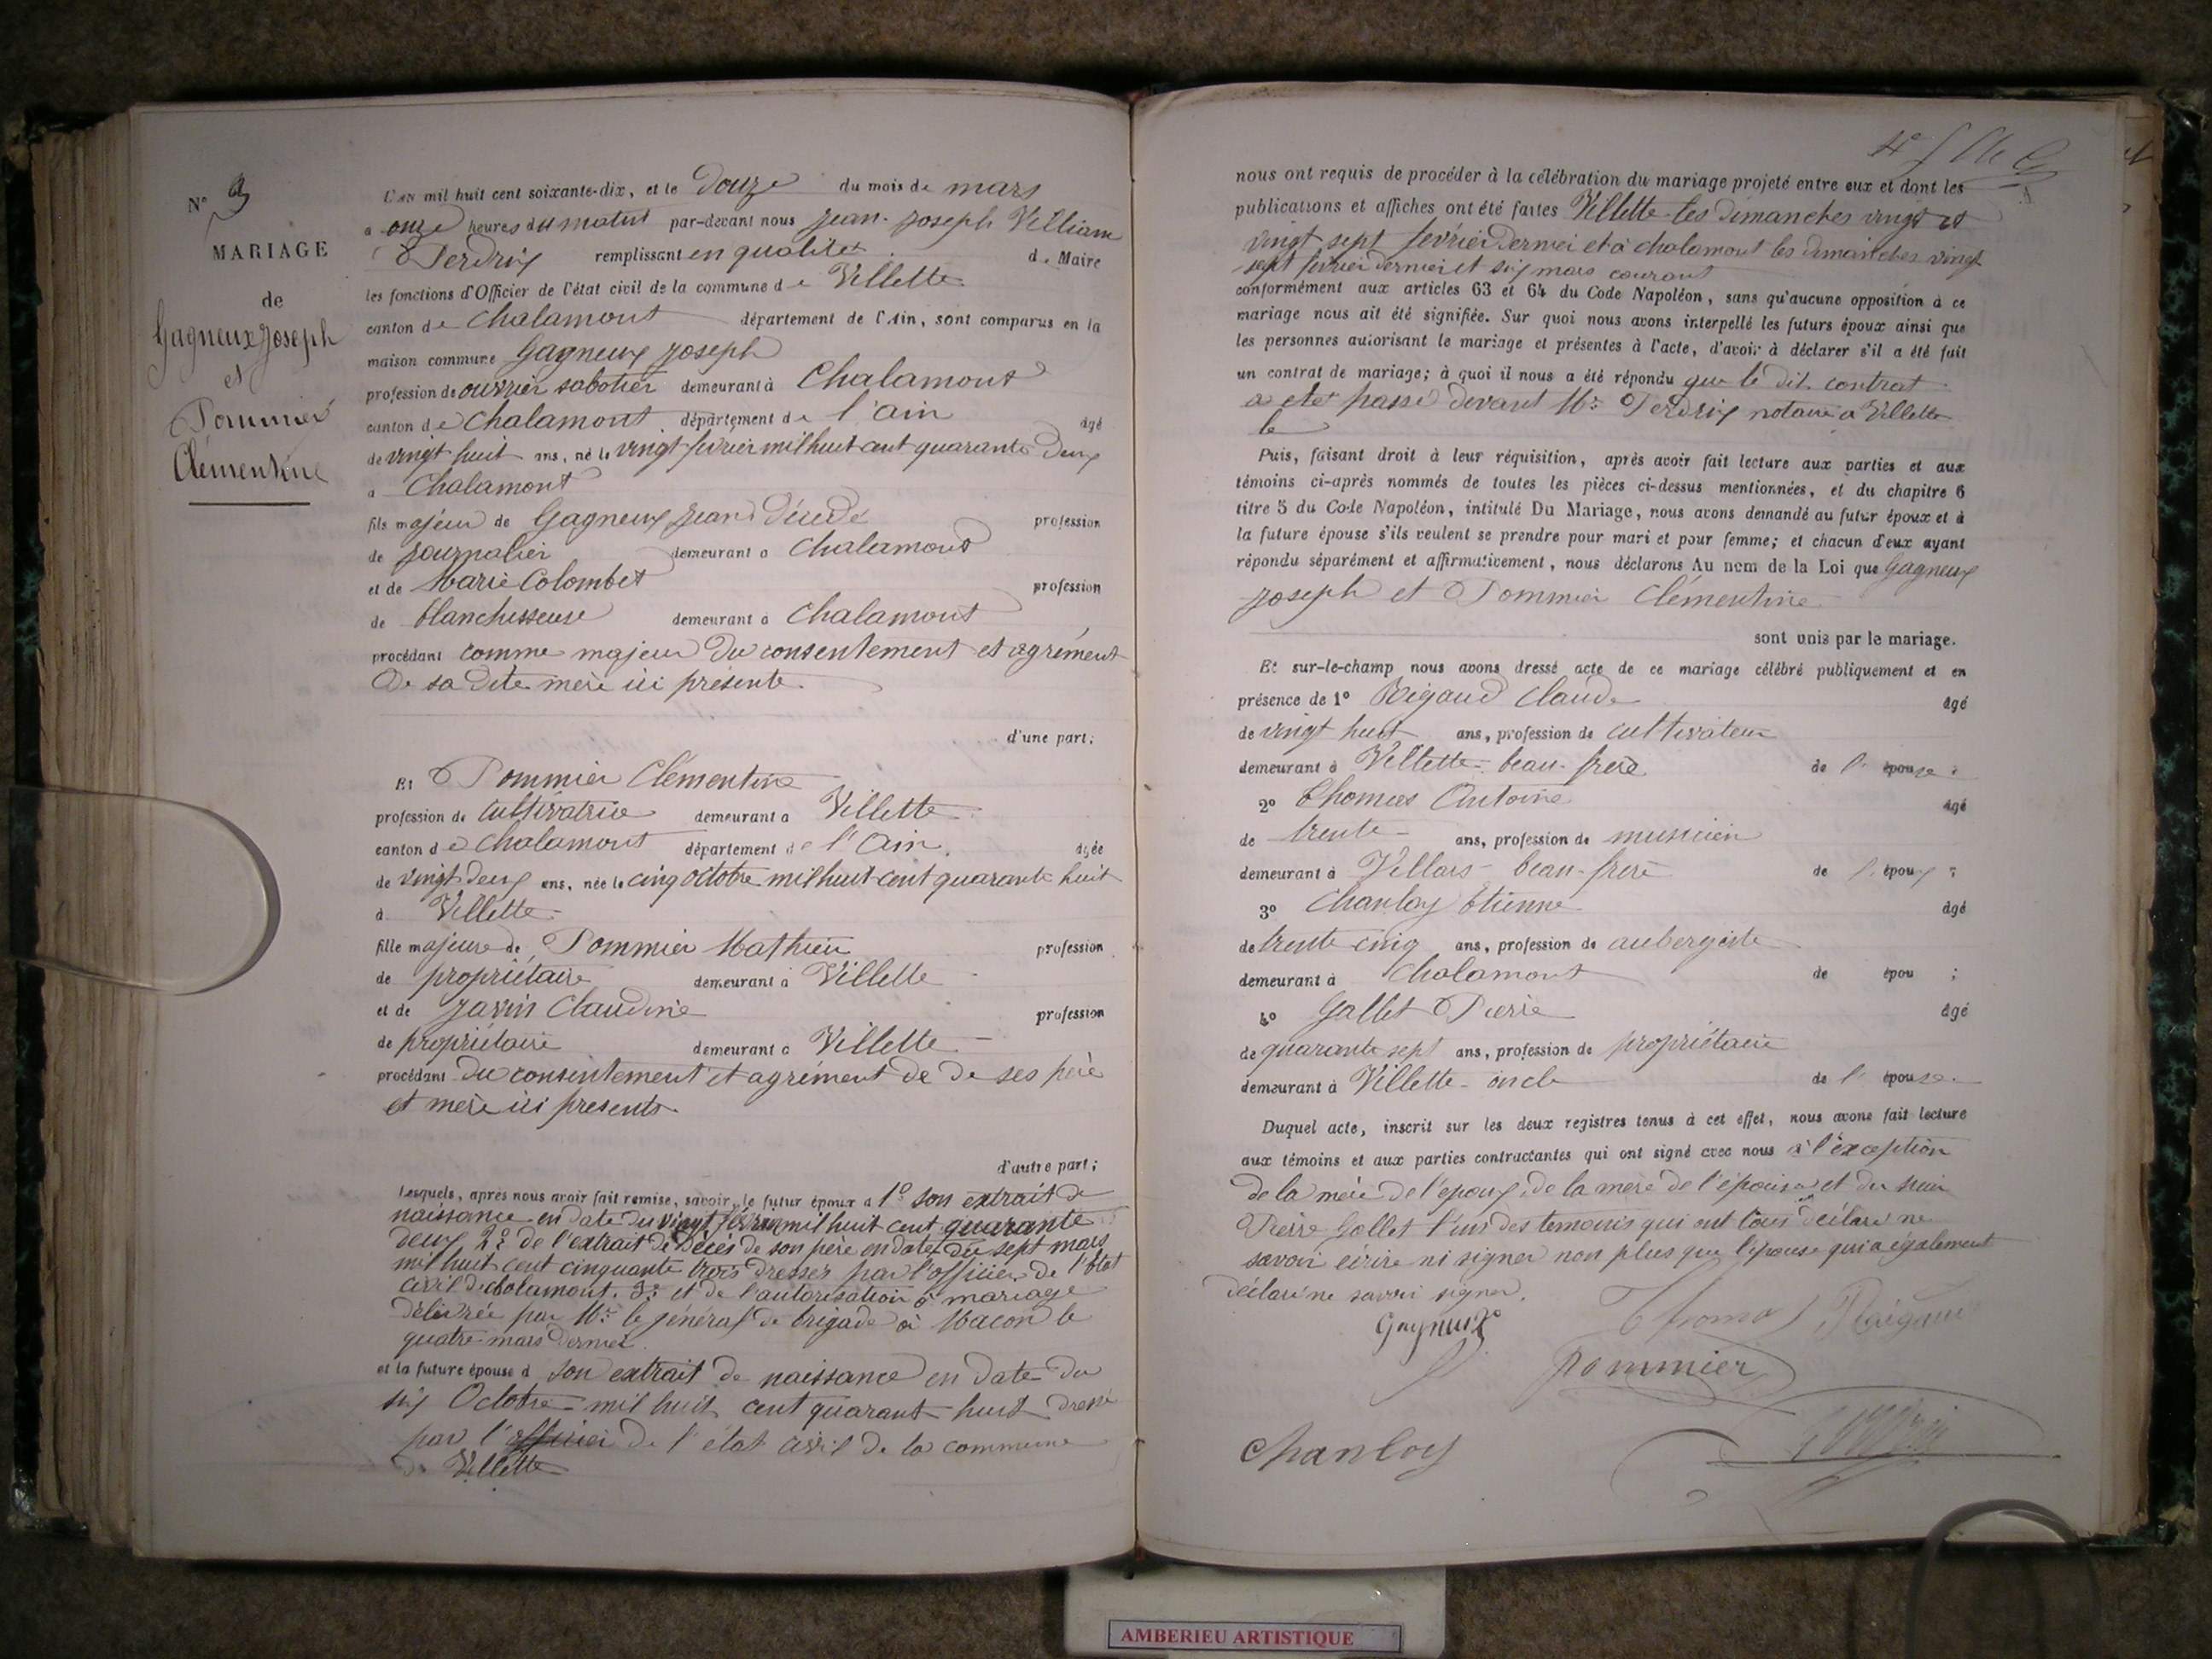 N° 3
MARIAGE
de
Gagneux Joseph
et
Pommier
Clémentine
L'AN mil huit cent soixante-dix, et le Douze du mois de mars
a onze heures du matin par-devant nous Jean-Joseph Villiam
Perdrix remplissant en qualité de Maire
les fonctions d'Officier de l'état civil de la commune de Villette
canton de Chalamont département de l'Ain, sont comparus en la
maison commune Gagneux Joseph
profession de ouvrier sabotier demeurant à Chalamont
canton de Chalamont département de l'ain âgé
de vingt huit ans, né le vingt février mil huit cent quarante deux
a Chalamont
fils majeur de Gagneux Jean décédé profession
de journalier demeurant a Chalamont
et de Marie Colombet profession
de blanchisseuse demeurant à Chalamont
procédant comme majeur du consentement et agrément
De sa dite mère ici présente
d'une part;
Et Pommier Clémentine
profession de cultivatrice demeurant a Villette
canton de Chalamont département de l'Ain. âgée
de vingt deux ans, née le cinq octobre mil huit cent quarante huit
à Villette
fille majeure de Pommier Mathieu profession
de propriétaire demeurant à Villette
et de Javin Claudine profession
de propriétaire demeurant a Villette
procédant du consentement et agrément de de ses père
et mère ici présents
d'autre part;
Lesquels, après nous avoir fait remise, savoir, le futur époux d 1° son extrait de
naissance en date du vingt février mil huit cent quarante
deux 2° de l'extrait de Décès de son père en date du sept mars
mil huit cent cinquante trois dressés par l'officier de l'état
civil de chalamont. 3° et de l'autorisation à mariage
délivrée par Mr le général de brigade à Macon le
quatre mars dernier.
et la future épouse d son extrait de naissance en date du
six Octobre mil huit cent quarant huit dressé
par l'officier de l'état civil de la commune
de Villette
nous ont requis de procéder à la célébration du mariage projeté entre eux et dont les
publications et affiches ont été faites Villette les dimanches vingt et
vingt sept février dernier et à chalamont les dimanches vingt
sept février dernier et six mars courant
conformément aux articles 63 et 64 du Code Napoléon, sans qu'aucune opposition à ce
mariage nous ait été signifiée. Sur quoi nous avons interpellé les futurs époux ainsi que
les personnes autorisant le mariage et présentes à l'acte, d'avoir à déclarer s'il a été fait
un contrat de mariage; à quoi il nous a été répondu que le dit contrat
a été passé devant Me Perdrix notaire à Villette
le
Puis, faisant droit à leur réquisition, après avoir fait lecture aux parties et aux
témoins ci-après nommés de toutes les pièces ci-dessus mentionnées, et du chapitre 6
titre 5 du Code Napoléon, intitulé Du Mariage, nous avons demandé au futur époux et à
la future épouse s'ils veulent se prendre pour mari et pour femme; et chacun d'eux ayant
répondu séparément et affirmativement, nous déclarons Au nom de la Loi que Gagneux
Joseph et Pommier Clémentine
sont unis par le mariage.
Et sur-le-champ nous avons dressé acte de ce mariage célébré publiquement et en
présence de 1° Rigaud Claude âgé
de vingt huit ans, profession de cultivateur
demeurant à Villette beau-frère de l'épouse
2° Thomas Antoine âgé
de trente ans, profession de musicien
demeurant à Villars beau-frère de l'époux;
3° Chanloy Etienne âgé
de trente cinq ans, profession de aubergiste
demeurant à Chalamont de épou ;
4° Gallet Pierre âgé
de quarante sept ans, profession de propriétaire
demeurant à Villette oncle de l'épouse
Duquel acte, inscrit sur les deux registres tenus à cet effet, nous avons fait lecture
aux témoins et aux parties contractantes qui ont signé avec nous à l'exception
de la mère de l'époux, de la mère de l'épouse et du sieur
Pierre Gallet l'un des temoins qui ont tous déclaré ne
savoir écrire ni signer non plus que l'épouse qui a également
déclaré ne savoir signer.
Gagneux
Thomas
Raigaud
pommier
Chanloy
AMBERIEU ARTISTIQUE